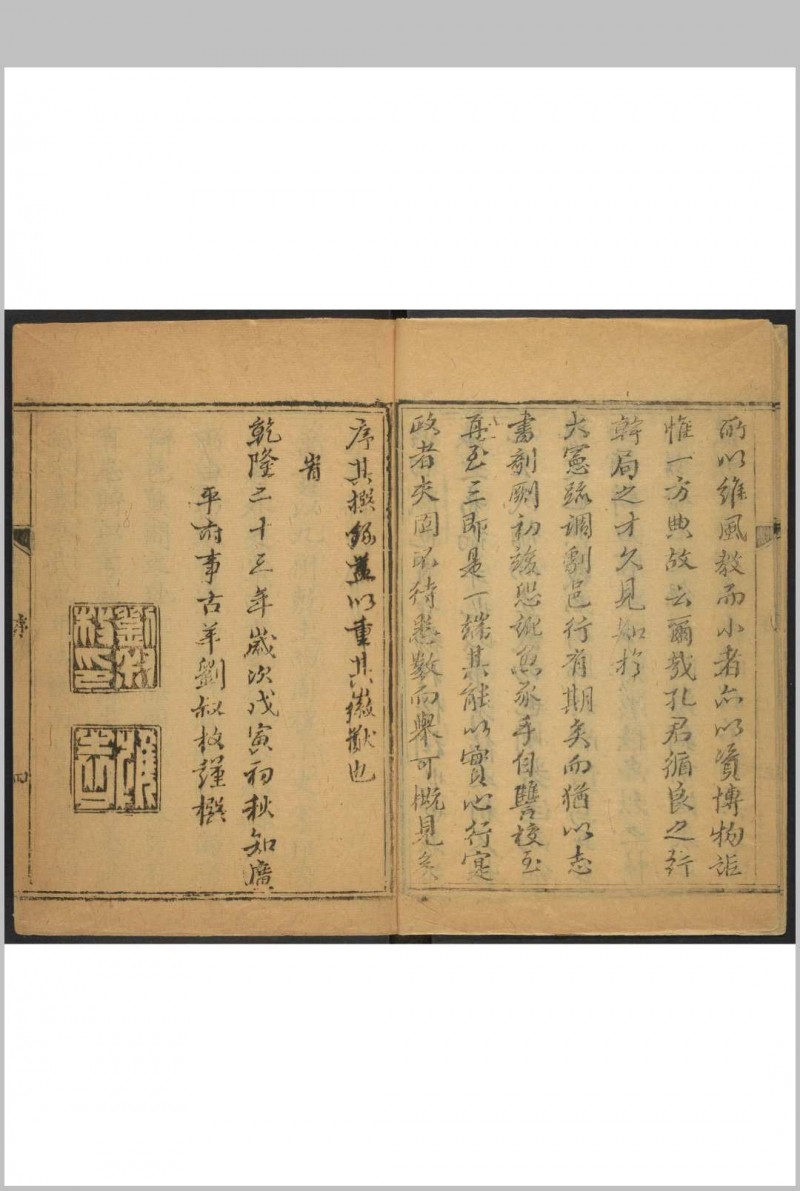 所以維風教而小者亦以資博物詎
惟一方典故云爾哉孔君循良之行
幹局之才久見知於
大憲疏調劇邑行有期矣而猶以志
書剞劂初竣恐訛魚豕手自讐校至
再至三即是一端其能以實心行寔
政者夫固不待悉數而舉可概見矣
序其撰錄蓋以重其徽猷也
旹
乾隆二十三年歲次戊寅初秋知廣
平府事古羊劉叔枚謹撰
序
四
劉叔枚印